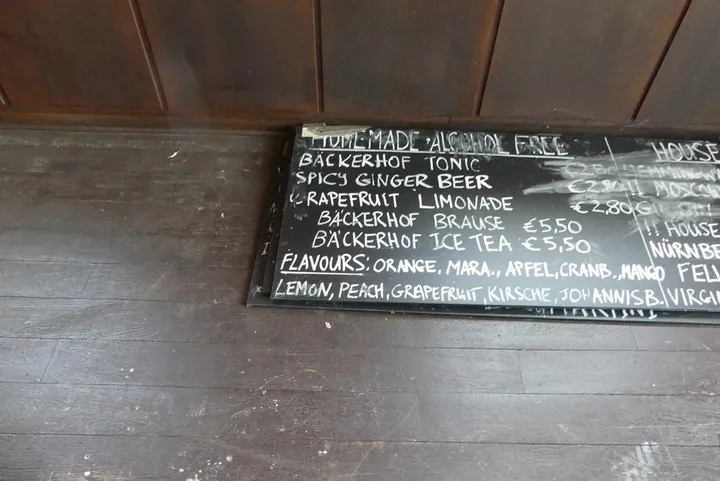 HOMEMADE ALCOHOL FREE
BÄCKERHOF TONIC
SPICY GINGER BEER €2,80
GRAPEFRUIT LIMONADE €2,80
BÄCKERHOF BRAUSE €5,50
BÄCKERHOF ICE TEA €5,50
FLAVOURS: ORANGE, MARA., APFEL, CRANB., MANGO
LEMON, PEACH, GRAPEFRUIT, KIRSCHE, JOHANNISB.
HOUSE
!! MOSCOW
!! HOUSE
NÜRNBE
FELL
VIRGI